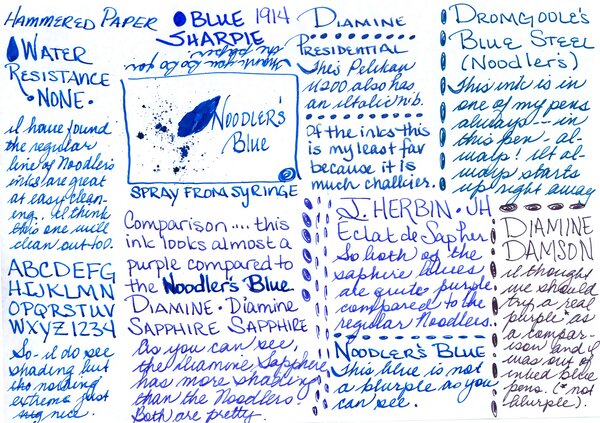 HAMMERED PAPER
WATER
RESISTANCE
·NONE·
I have found
the regular
line of Noodler's
inks are great
at easy clean-
ing. I think
this one will
clean out too.
ABCDEFG
HIJKLMN
OPQRSTUV
WXYZ1234
So I do see
shading but
its nothing
extreme just
nice.
BLUE 1914
SHARPIE
thank you to you
the paper.
NOODLER'S
Blue
SPRAY FROM SYRINGE
Comparison.... this
ink looks almost a
purple compared to
the Noodler's Blue
DIAMINE · Diamine
SAPPHIRE SAPPHIRE
As you can see,
the Diamine Sapphire
has more shading
than the Noodlers.
Both are pretty.
DIAMINE
PRESIDENTIAL
This Pelikan
M200 also has
an Italic nib.
Of the inks this
is my least fav
because it is
much chalkier.
J. HERBIN · JH
Eclat de Saphir
So both of the
saphire blues
are quite purple
compared to the
regular Noodlers.
NOODLER'S BLUE
This blue is not
a blurple as you
can see.
DROMGOOLE'S
BLUE STEEL
(Noodler's)
This ink is in
one of my pens
always - in
this pen al-
ways! It al-
ways starts
up right away
DIAMINE
DAMSON
I thought
we should
try a real
purple* as
a compar-
ison and I
was out of
inked blue
pens. (*not
blurple).